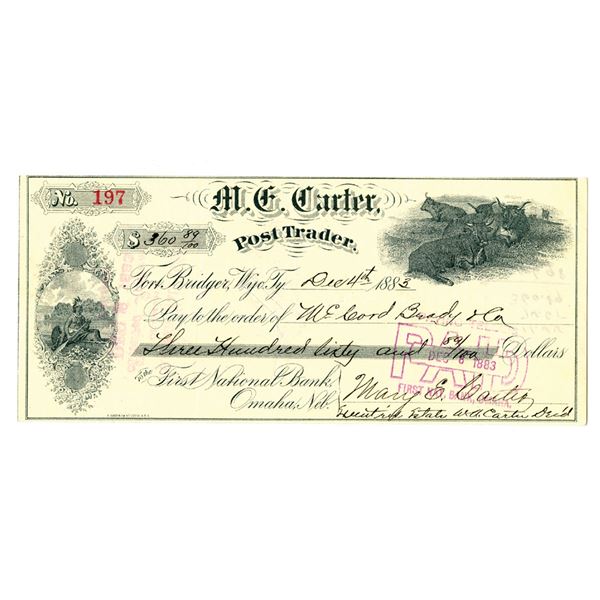 No. 197
M. E. Carter,
Post Trader.
$360 89/100
Fort Bridger, Wyo. Ty. Dec 4th 1883
Pay to the order of McCord Brady & Co
Three Hundred Sixty and 89/100 Dollars
To the First National Bank,
Omaha, Neb.
PAID
DEC 8 1883
FIRST NAT. BANK, OMAHA.
Mary E. Carter
Executrix Estate W.A. Carter Dec'd